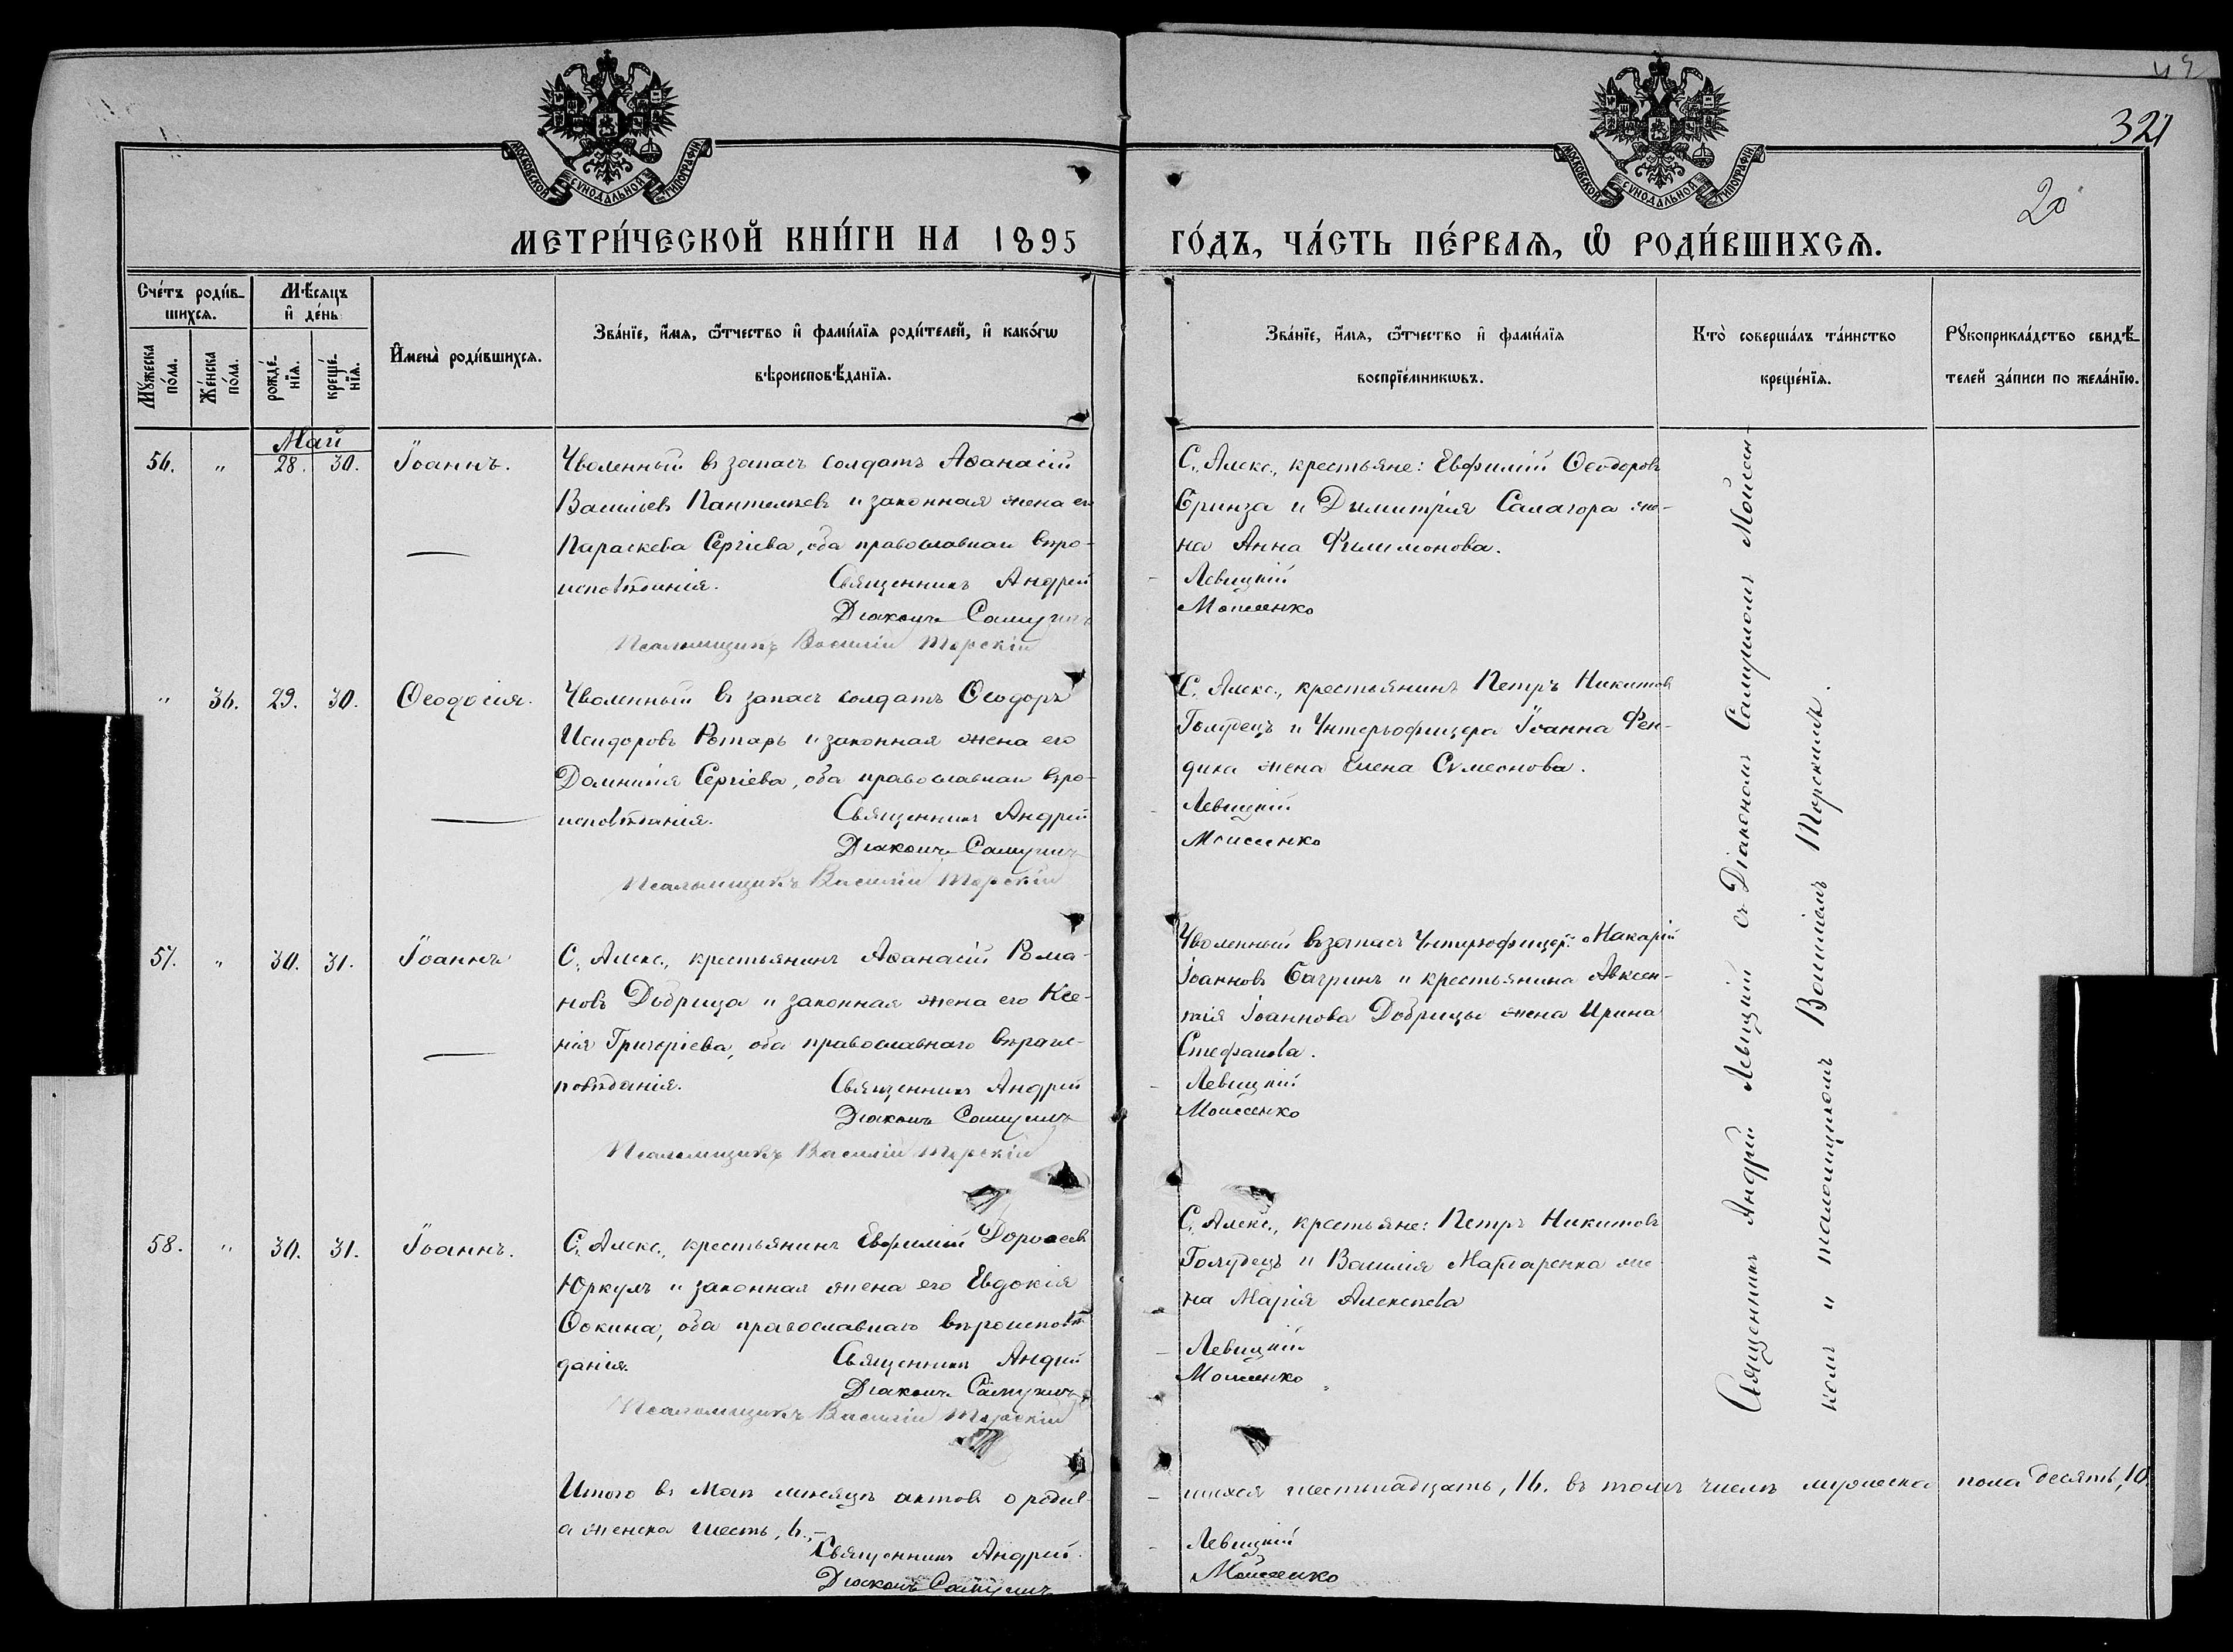 МОСКОВСКОЙ СѴНОДАЛЬНОЙ ТИПОГРАФІИ
МОСКОВСКОЙ СѴНОДАЛЬНОЙ ТИПОГРАФІИ
321
20
МЕТРИ́ЧЕСКОЙ КНИ́ГИ НА 1895 ГО́ДЪ, ЧА́СТЬ ПЕ́РВАѦ, Ѡ҆ РОДИ́ВШИХСѦ.
Сче́тъ роди́в-
шихсѧ.
Мꙋ́жеска по́ла.
Же́нска по́ла.
Мѣ́сѧцъ
и҆ де́нь
рожде́-
нїѧ.
креще́-
нїѧ.
И҆мена̀ роди́вшихсѧ.
Зва́нїе, и҆́мѧ, ѻ҆́тчество и҆ фами́лїѧ роди́телей, и҆ како́гѡ
вѣроисповѣ́данїѧ.
Зва́нїе, и҆́мѧ, ѻ҆́тчество и҆ фами́лїѧ
воспрїе́мникѡвъ.
Кто̀ соверша́лъ та́инство
креще́нїѧ.
Рꙋкоприкла́дство свидѣ́-
телей за́писи по жела́нїю.
Май
56. " 28. 30. Іоаннъ.
Уволенный въ запасъ солдатъ Аѳанасій
Васильевъ Пантелѣевъ и законная жена его
Параскева Сергіева, оба православнаго вѣро-
исповѣданія. Священникъ Андрей
Діаконъ Самуилъ
Псаломщикъ Василій Торскій
С. Алекс., крестьяне: Евфимій Ѳеодоровъ
Бринза и Димитрія Салагора же-
на Анна Филимонова.
Левицкій
Моисеенко
" 36. 29. 30. Ѳеодосія.
Уволенный въ запасъ солдатъ Ѳеодоръ
Исидоровъ Ротарь и законная жена его
Домникія Сергіева, оба православнаго вѣро-
исповѣданія. Священникъ Андрей
Діаконъ Самуилъ
Псаломщикъ Василій Торскій
С. Алекс., крестьянинъ Петръ Никитовъ
Голубецъ и Унтерофицера Іоанна Фен-
дика жена Елена Сѵмеонова.
Левицкій
Моисеенко
57. " 30. 31. Іоаннъ
С. Алекс., крестьянинъ Аѳанасій Рома-
новъ Добрица и законная жена его Ксе-
нія Григоріева, оба православнаго вѣроис-
повѣданія. Священникъ Андрей
Діаконъ Самуилъ
Псаломщикъ Василій Торскій
Уволенный въ запасъ Унтерофицеръ Макарій
Іоанновъ Багринъ и крестьянина Авксен-
тія Іоаннова Добрицы жена Ирина
Стефанова.
Левицкій
Моисеенко
58. " 30. 31. Іоаннъ.
С. Алекс., крестьянинъ Евфимій Дороѳеевъ
Юркулъ и законная жена его Евдокія
Ѳокина, оба православнаго вѣроисповѣ-
данія. Священникъ Андрей
Діаконъ Самуилъ
Псаломщикъ Василій Торскій
С. Алекс., крестьяне: Петръ Никитовъ
Голубецъ и Василія Маларенка же
на Марія Алексѣева
Левицкій
Моисеенко
Священникъ Андрей Левицкій съ Діакономъ Самуиломъ Моисеен-
комъ и псаломщикомъ Василіемъ Торскимъ.
Итого въ Маѣ мѣсяцѣ актовъ о родив-
шихся шестнадцать, 16. въ томъ числѣ мужеска пола десять, 10.
а женска шесть, 6.
Священникъ Андрей
Левицкій
Діаконъ Самуилъ
Моисеенко